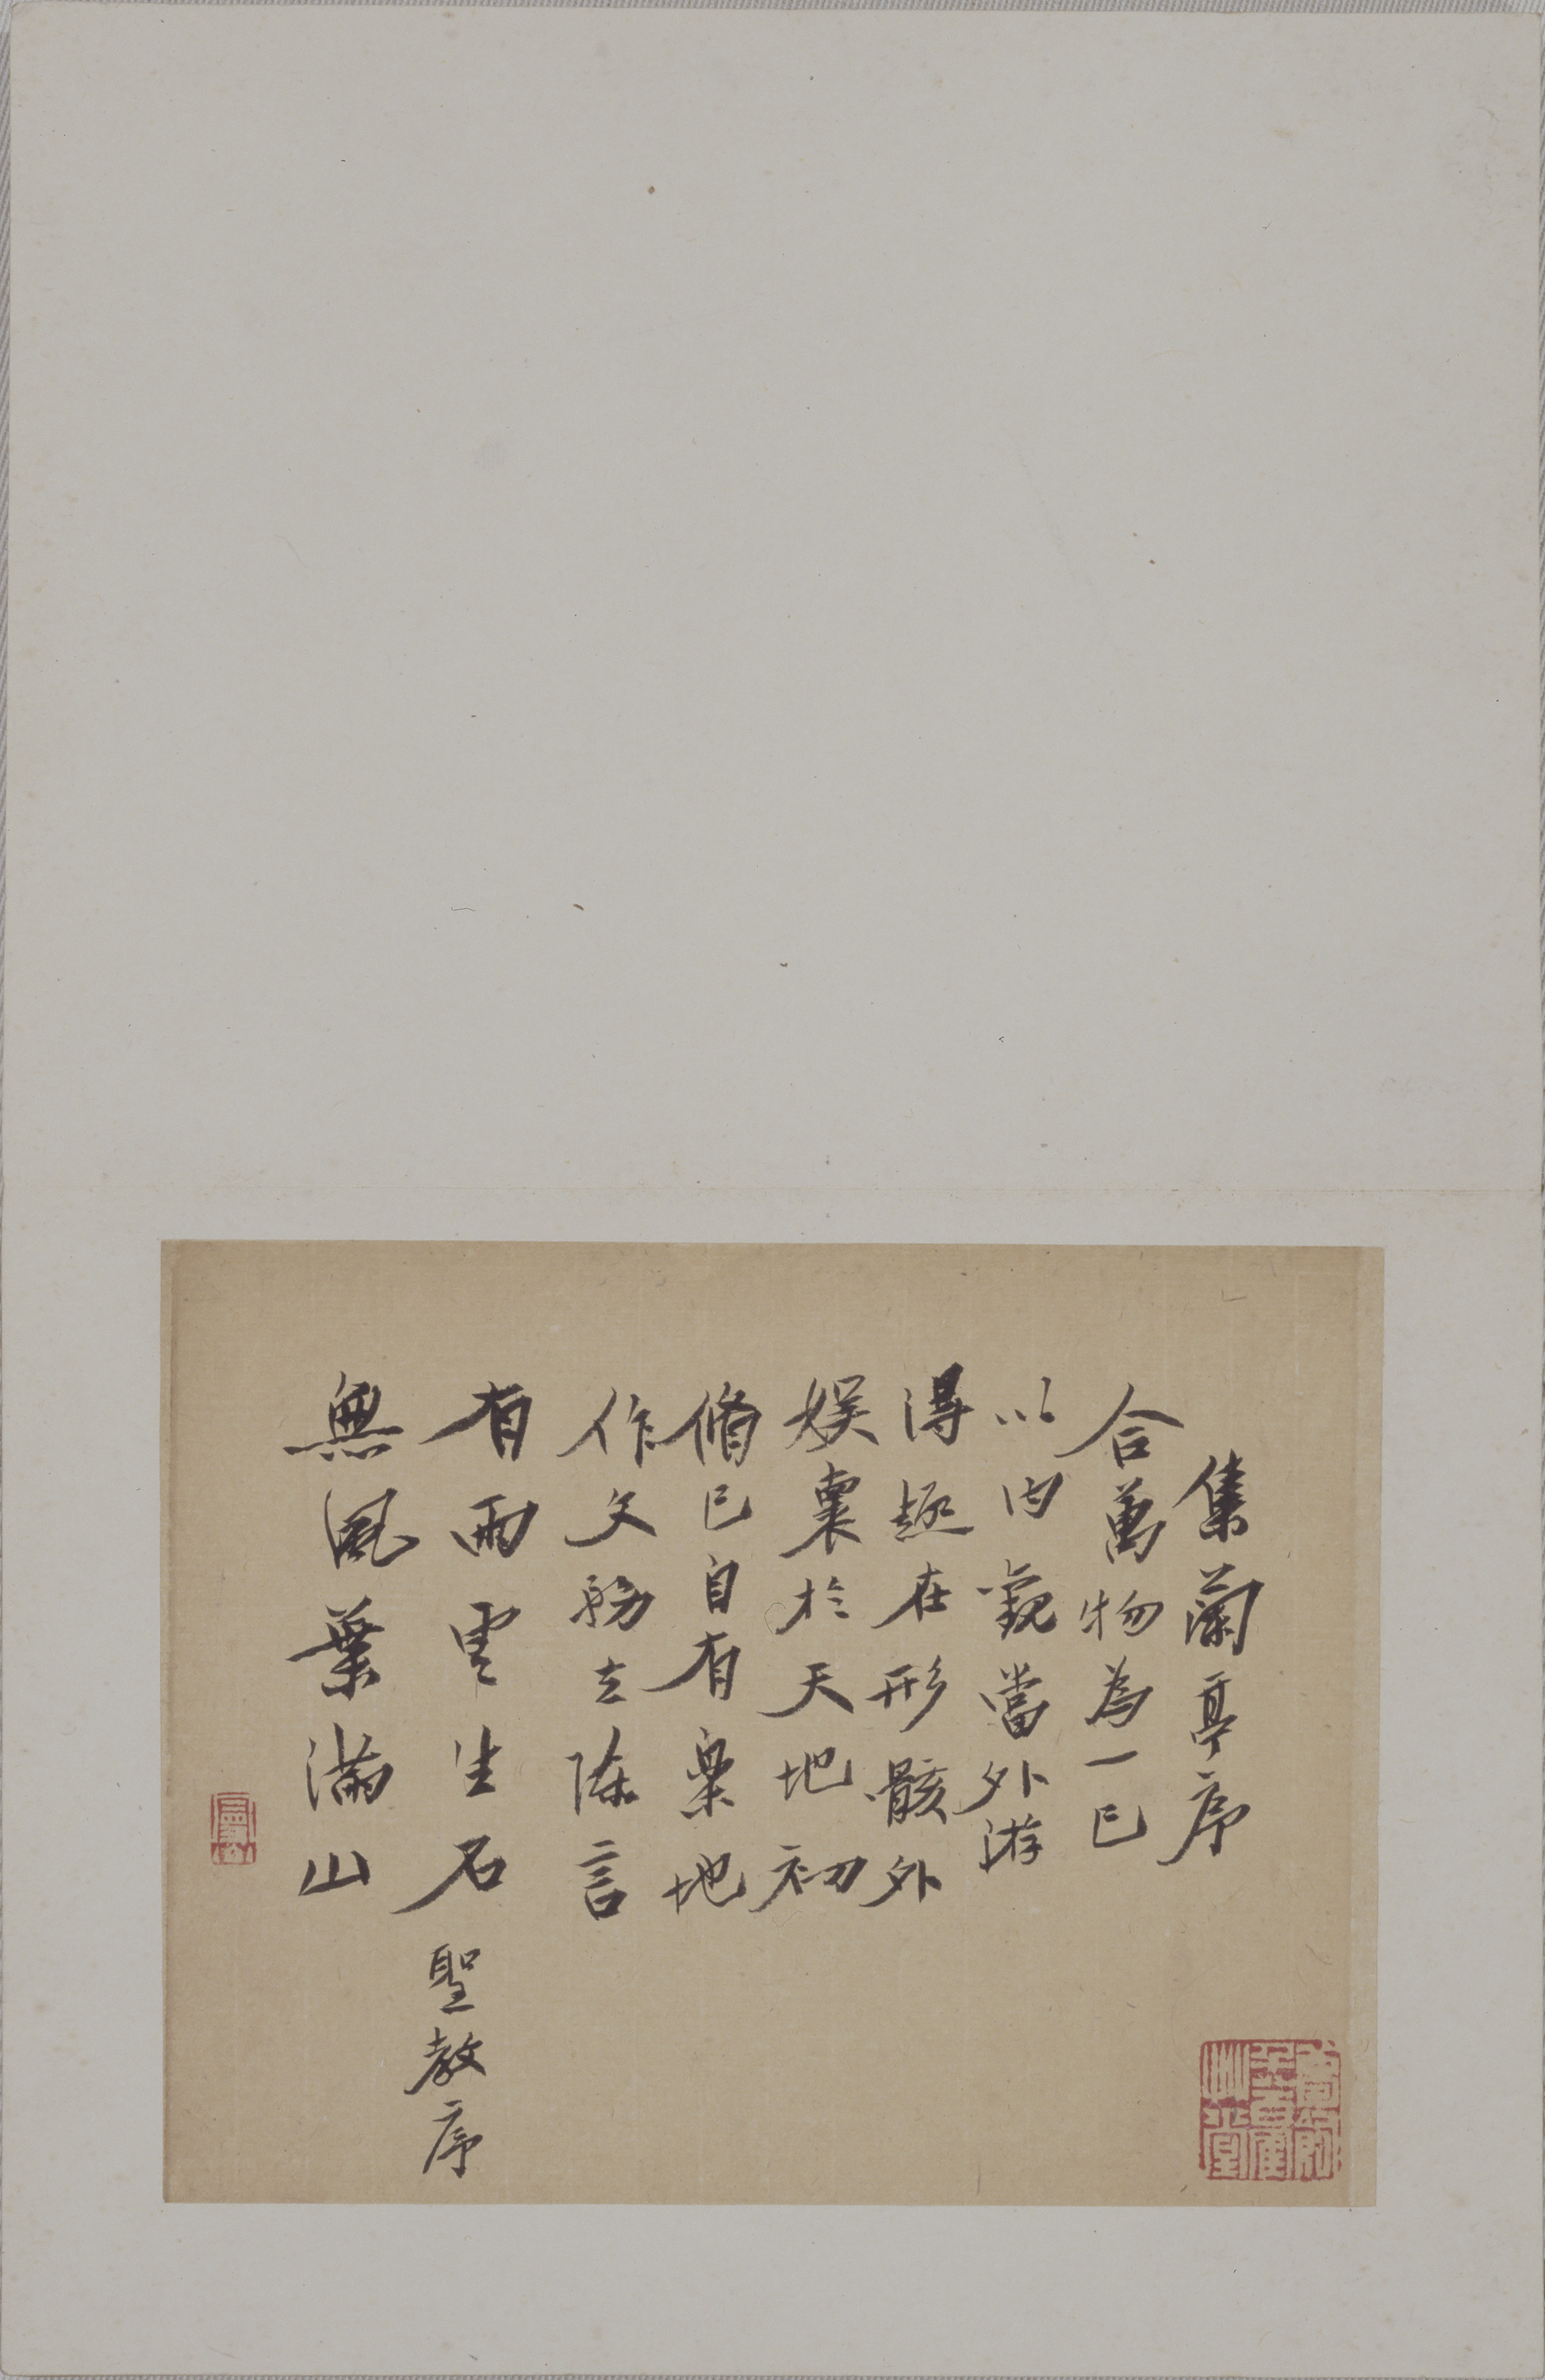 集蘭亭序
合萬物為一己
以內觀當外游
得趣在形骸外
娱襄於天地初
脩己自有樂地
作文務去陳言
有雨雲生石 聖教序
無風葉滿山